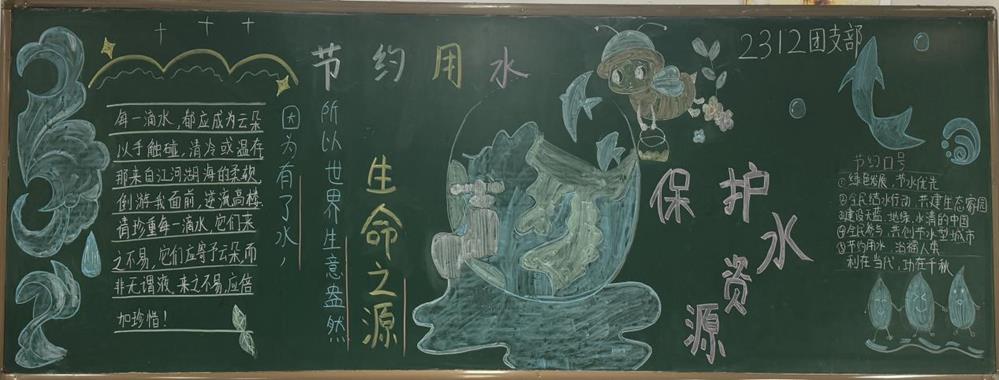 节约用水
2312团支部
每一滴水，都应成为云朵
以手触碰，清冷或温存
那来自江河湖海的柔软
倒游我面前，逆流高楼
请珍重每一滴水，它们来
之不易，它们应寄予云朵，而
非无谓液，来之不易，应倍
加珍惜！
因为有了水，
所以世界生意盎然
生命之源
保护水资源
节约口号
①绿色发展，节水优先
②全民节水行动，共建生态家园
③建设天蓝、地绿、水清的中国
④全民参与，共创节水型城市
⑤节约用水，浴福人集
利在当代，功在千秋